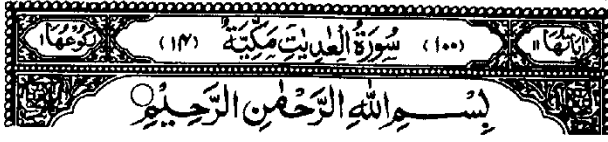 اٰيَاتُهَا ١١ (١٠٠) سُوْرَةُ الْعٰدِيٰتِ مَكِّيَّةٌ (١٤) رُكُوْعُهَا ١
بِسْمِ اللّٰهِ الرَّحْمٰنِ الرَّحِيْمِ